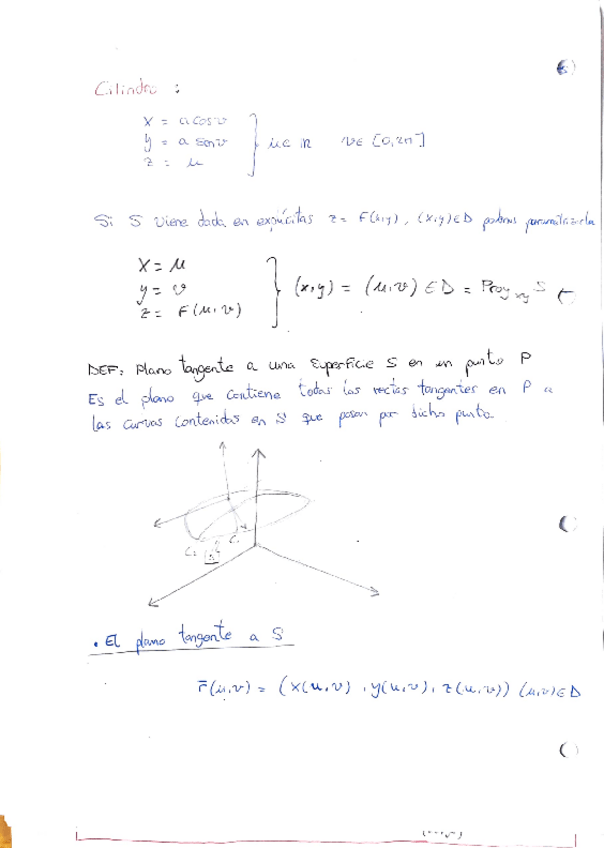 Cilindro :
x = a cos v
y = a sen v } u ∈ R v ∈ [0,2π]
z = u
Si S viene dada en explícitas z = F(x,y), (x,y) ∈ D podemos parametrizarla
x = u
y = v } (x,y) = (u,v) ∈ D = Proy xy S
z = F(u,v)
DEF: Plano tangente a una superficie S en un punto P
Es el plano que contiene todas las rectas tangentes en P a
las curvas contenidas en S que pasan por dicho punto.
C2 C1
• El plano tangente a S
r̄(u,v) = (x(u,v), y(u,v), z(u,v)) (u,v) ∈ D